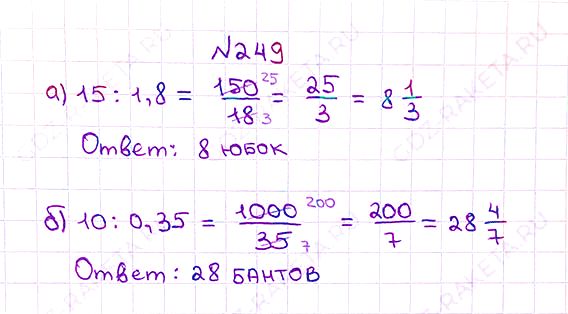 N249
а) 15 : 1,8 = 150 25 / 18 3 = 25/3 = 8 1/3
Ответ: 8 юбок
б) 10 : 0,35 = 1000 200 / 35 7 = 200/7 = 28 4/7
Ответ: 28 бантов